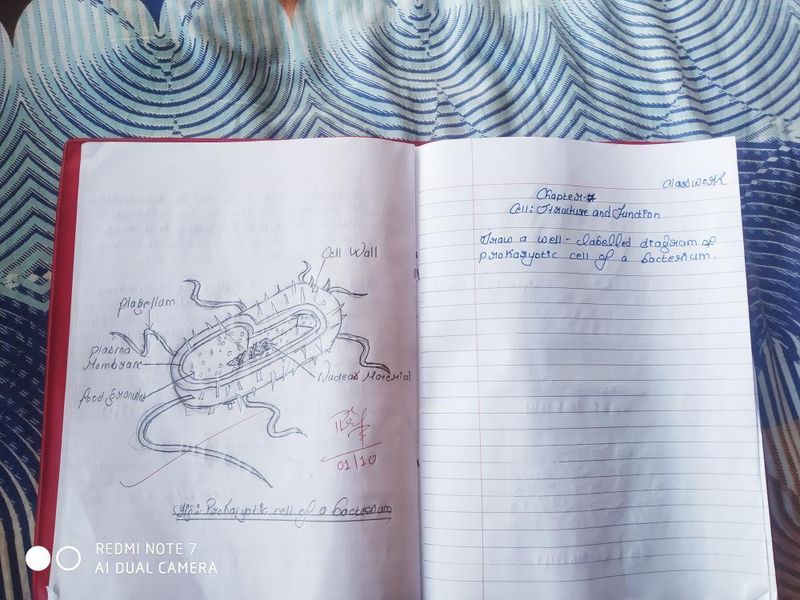 Cell Wall
flagellum
plasma
Membrane
food granules
Nuclear Material
01/10
Fig:- Prokaryotic cell of a bacterium
Classwork
Chapter-
Cell: Structure and Function
Draw a well-labelled diagram of
prokaryotic cell of a bacterium.
REDMI NOTE 7
AI DUAL CAMERA